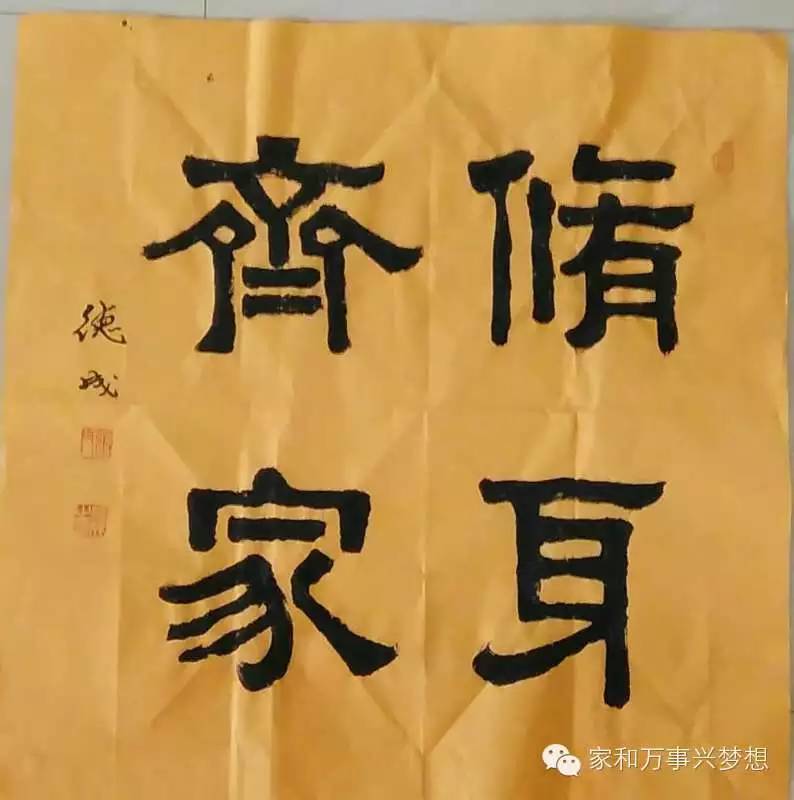 脩身
齊家
德成
家和万事兴梦想